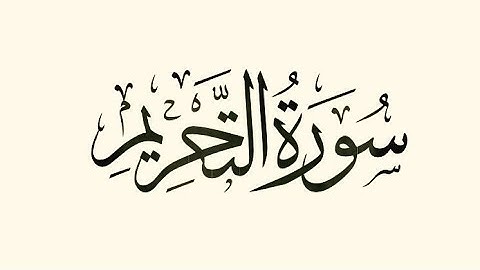 سُورَةُ التَّحْرِيمِ